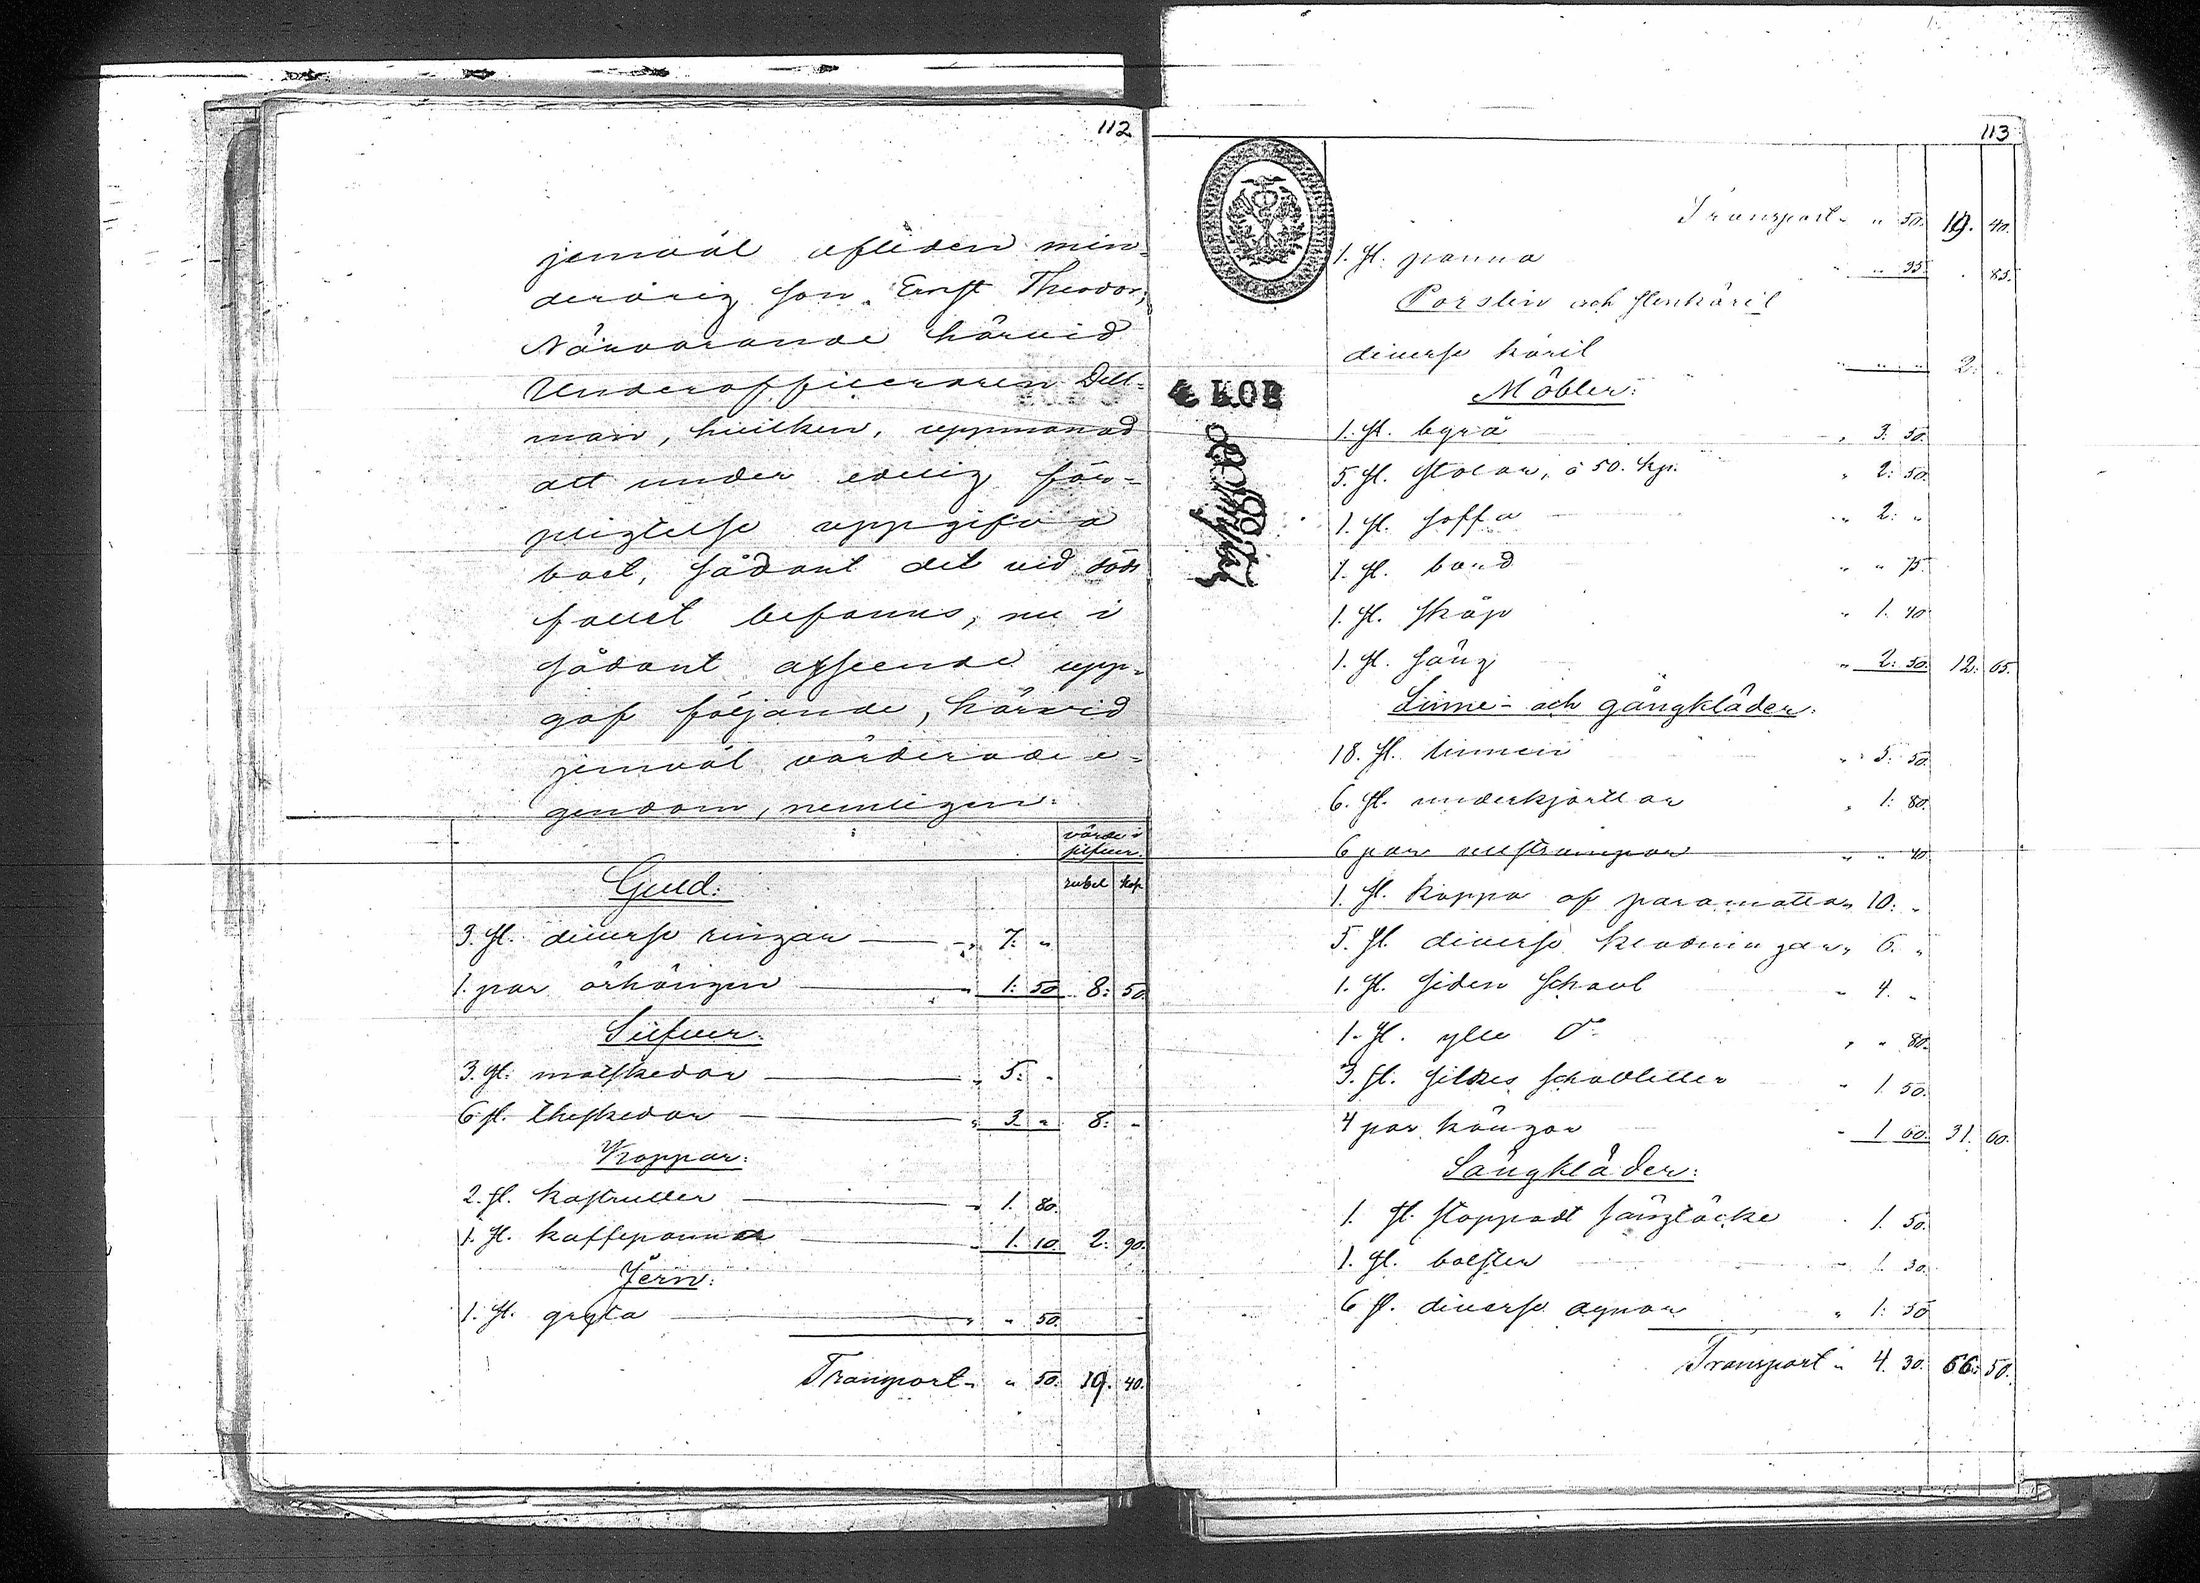 112
jemväl afliden min-
derårig son Ernst Theodor;
Närvarande härvid
Underofficeraren Dell-
man, hvilken, uppmanad
att under edelig för-
pligtelse uppgifva
boet, sådant det vid döds
fallet befanns, nu i
sådant afseende upp-
gaf följande, härvid
jemväl värderade e-
gendom, nemligen:
värde i
silfver.
rubel kop.
Guld:
3. st. diverse ringar — " 7: "
1. par örhängen — " 1: 50. 8: 50
Silfver:
3. st. matskedar — " 5: "
6 st. theskedar — " 3 " 8: "
Koppar:
2. st. kastruller — " 1. 80.
1. st. kaffepanna — " 1. 10. 2: 90.
Jern:
1. st. gryta — " " 50.
Transport " " 50. 19. 40.
113
Transport " " 50. 19. 40.
1. st. panna " " 35 . 85.
Porslin och stenkäril
diverse käril " " " 2: .
4 KOP
Möbler:
1. st. byrå " 3: 50.
5. st. stolar, à 50. kp. " 2: 50.
1. st. soffa " 2: "
1. st. bord " " 75
1. st. skåp " 1. 40
1. st. säng " 2: 50. 12: 65.
Linne- och gångkläder:
18. st. linnen " 5: 50.
6. st. underkjortlar " 1: 80.
6 par ullstrumpor " " 40
1. st. kappa af paramatta " 10: "
5. st. diverse kladningar " 6. "
1. st. siden schavl " 4. "
1. st. ylle d:o " " 80.
3. st. silkes schavletter " 1. 50.
4 par kängor " 1 60. 31. 60.
Sängkläder:
1. st. stoppadt sängtäcke " 1. 50.
1. st. bolster " 1. 30.
6 st. diverse dynor " 1: 50
Transport " 4. 30. 66. 50.